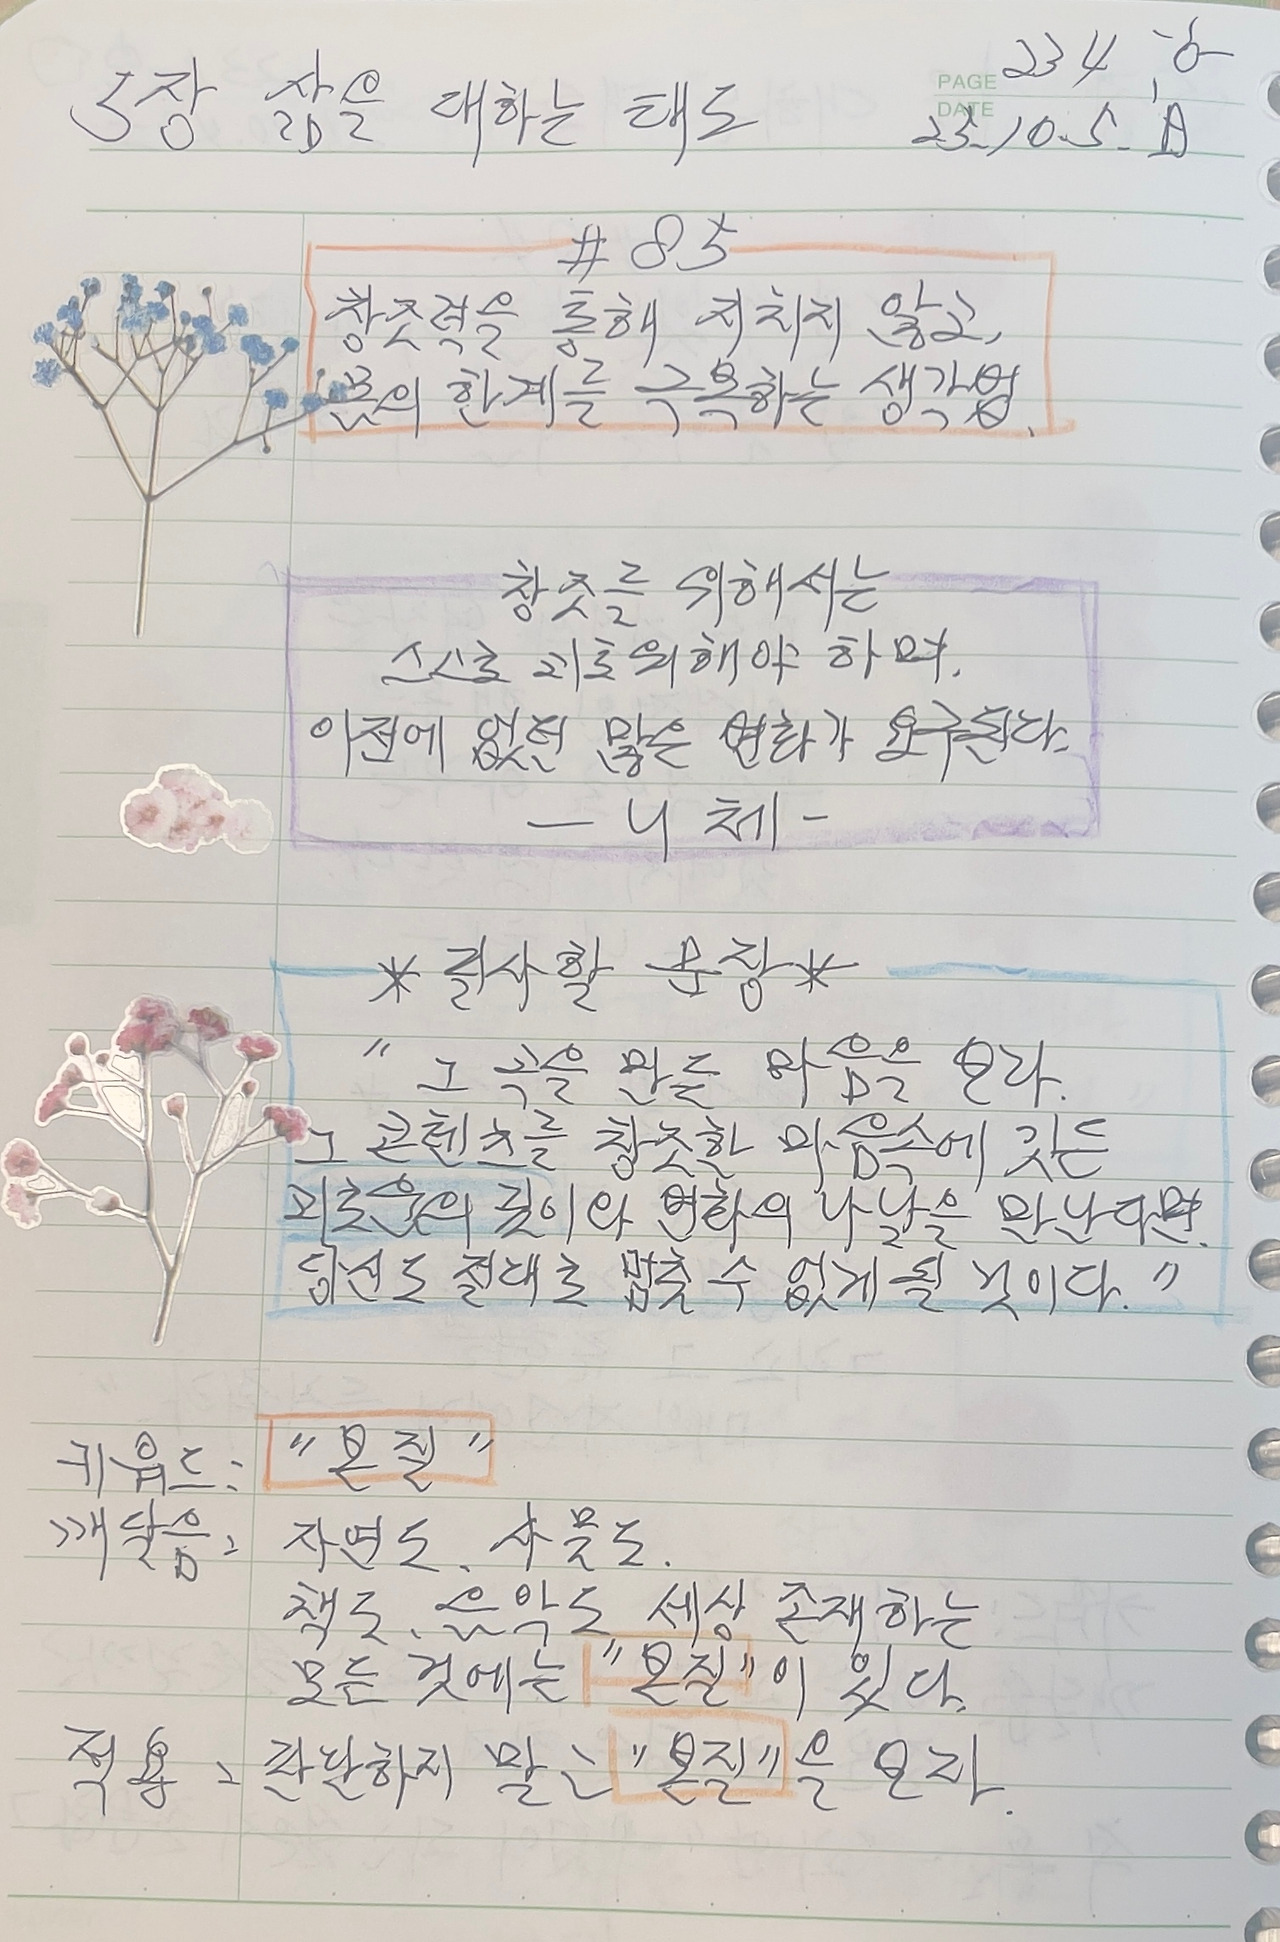 5장 삶을 대하는 태도
PAGE 234
DATE 25.10.5.
#85
창조력을 통해 지치지 않고,
몸의 한계를 극복하는 생각법.
창조를 위해서는
스스로 괴로워해야 하며,
이전에 없던 많은 변화가 요구된다.
— 니체 -
* 필사할 문장 *
"그 곡을 만든 마음을 보라.
그 콘텐츠를 창조한 마음속에 깃든
괴로움의 깊이와 변화의 나날을 만난다면,
당신도 절대로 멈출 수 없게 될 것이다."
키워드: "본질"
깨달음: 자연도, 사물도,
책도, 음악도 세상 존재하는
모든 것에는 "본질"이 있다.
적용: 판단하지 말고 "본질"을 보자.